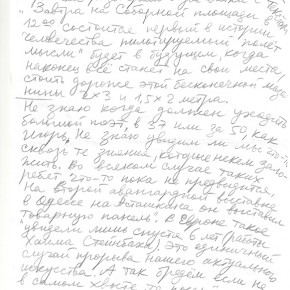 "Завтра на Соборной площади в
12:00 состоится первый в истории
человечества пилотируемый полет
мысли" будет в будущем, когда
наконец все станет на свои места,
стоить дороже этой бесконечной
нины 2×3 и 1,5×2 метра.
Не знаю когда должен уходить
большой поэт, в 37 или за 50, как
Игорь. Не знаю увидим ли мы что-то
сквозь те зияния, которые некем запол-
нить. Во всяком случае таких
ребят что-то пока не предвидится.
На второй авангардной выставке
в Одессе на он выставил
"Товарную панель". В Европе такое
увидели лишь спустя 6 лет (работы
Хаима Стейнбаха). Это единичный
случай прорыва нашего актуального
искусства. А так бредём если не
в самом хвосте то